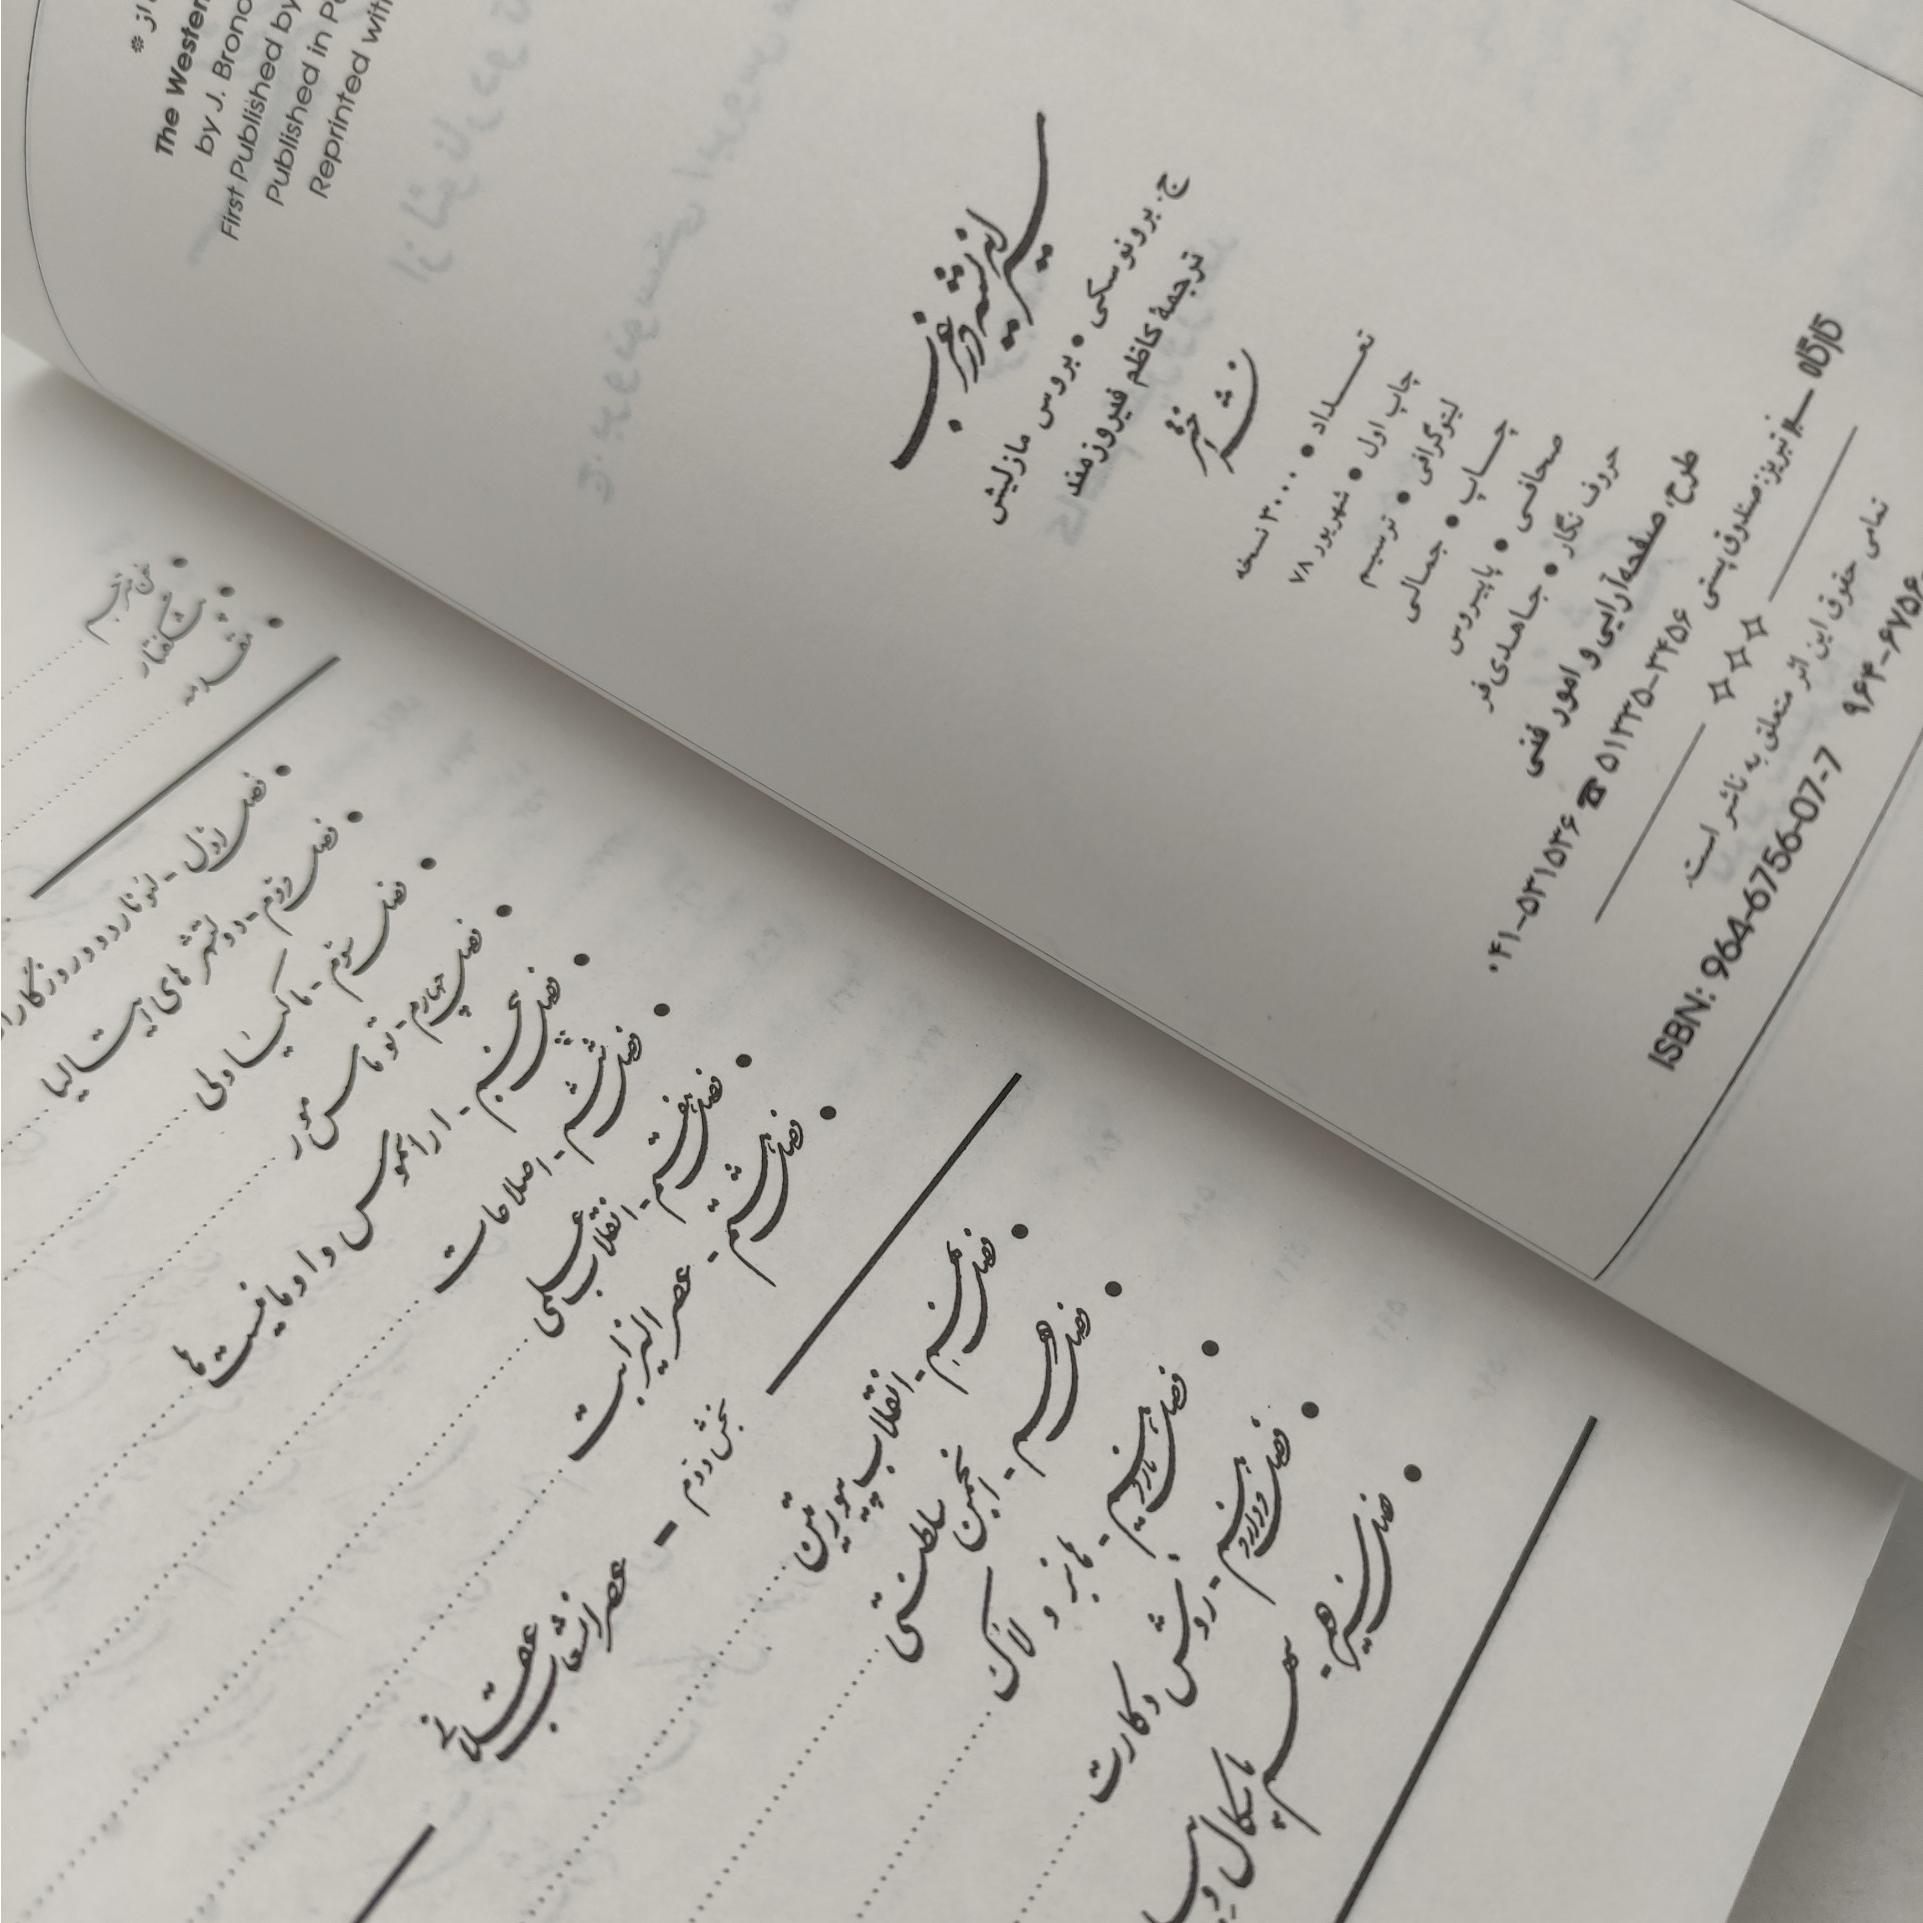 از *
The Western
by J. Brono
First Published by
Published in Pe
Reprinted with
سیر اندیشه در غرب
ج. برونوسکی • بروس مازلیش
ترجمهٔ کاظم فیروزمند
نشر اختر
تعداد • ۳۰۰۰ نسخه
چاپ اول • شهریور ۷۸
لیتوگرافی • ترسیم
چاپ • جمالی
صحافی • پاپیروس
حروف نگار • جاهدی‌فر
طرح، صفحه‌آرایی و امور فنی
کارگاه
تبریز: صندوق پستی ۳۴۵۶-۵۱۳۳۵ ☎ ۵۳۱۵۳۶-۰۴۱
تمامی حقوق این اثر متعلق به ناشر است.
ISBN: 964-6756-07-7 ۹۶۴-۶۷۵۶-
• سخن مترجم
• پیشگفتار
• مقدمه
• فصل اول - لئوناردو و روزگار او
• فصل دوم - دولتشهرهای ایتالیا
• فصل سوم - ماکیاولی
• فصل چهارم - توماس مور
• فصل پنجم - اراسموس و اومانیست‌ها
• فصل ششم - اصلاحات
• فصل هفتم - انقلاب علمی
• فصل هشتم - عصر الیزابت
بخش دوم - عصر انشعاب عقلانی
• فصل نهم - انقلاب پیوریتن
• فصل دهم - انجمن سلطنتی
• فصل یازدهم - هابز و لاک
• فصل دوازدهم - روش دکارت
• فصل سیزدهم - سهم پاسکال و